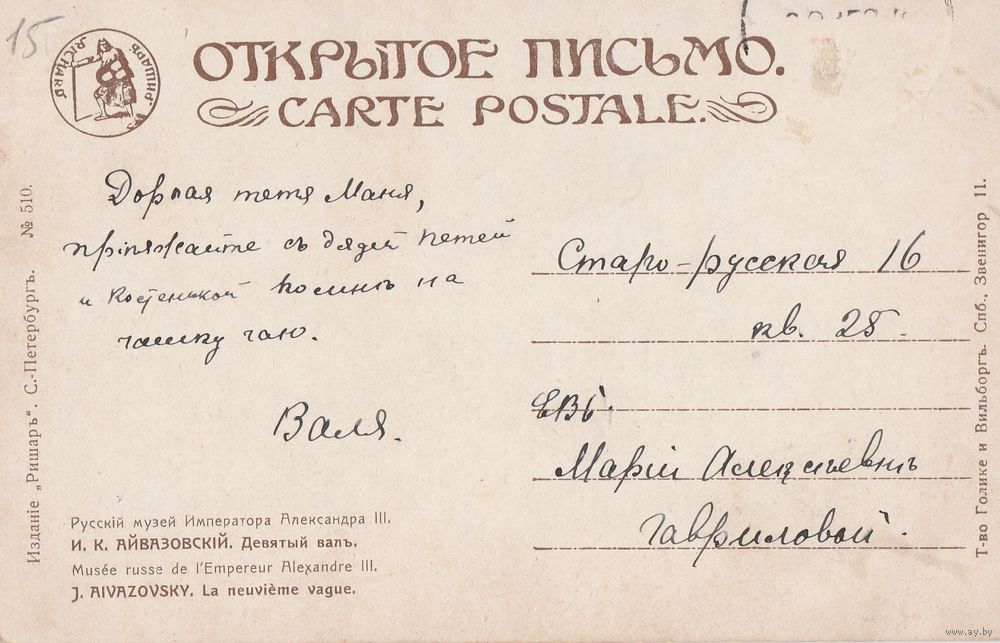 15
РИШАРЪ RICHARD
ОТКРЫТОЕ ПИСЬМО.
CARTE POSTALE.
Дорогая тетя Маня,
прiѣзжайте съ дядей Петей
и Костенькой ко мнѣ на
чашку чаю.
Валя.
Старо-русская 16
кв. 25.
ЕВБ.
Марiи Алексѣевнѣ
Гавриловой.
Русскiй музей Императора Александра III.
И. К. АЙВАЗОВСКIЙ. Девятый валъ.
Musée russe de l'Empereur Alexandre III.
J. AIVAZOVSKY. La neuvième vague.
Изданiе „Ришаръ“. С.-Петербургъ. № 510.
Т-во Голике и Вильборгъ. Спб., Звенигор 11.
www.ay.by